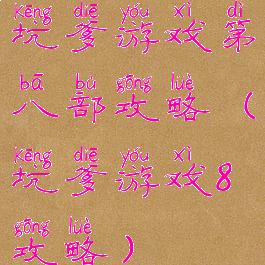 kēng diē yóu xì dì
坑爹游戏第
bā bù gōng lüè
八部攻略（
kēng diē yóu xì
坑爹游戏8
gōng lüè
攻略）